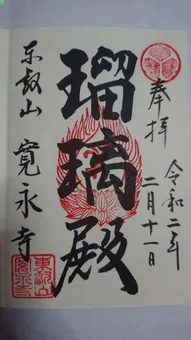 奉拝
令和二年
二月十一日
瑠璃殿
東叡山 寛永寺